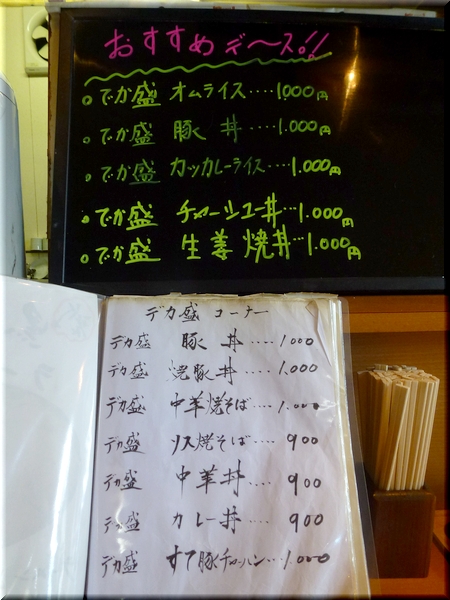 おすすめデ〜ス!!
でか盛 オムライス‥‥1000円
でか盛 豚丼‥‥1.000円
でか盛 カツカレーライス‥‥1.000円
でか盛 チャーシュー丼‥1.000円
でか盛 生姜焼丼‥1.000円
デカ盛 コーナー
デカ盛 豚丼‥‥1.000
デカ盛 焼豚丼‥‥1.000
デカ盛 中華焼そば‥‥1.000
デカ盛 ソース焼そば‥‥900
デカ盛 中華丼‥‥900
デカ盛 カレー丼‥‥900
デカ盛 すて豚チャーハン‥‥1.000